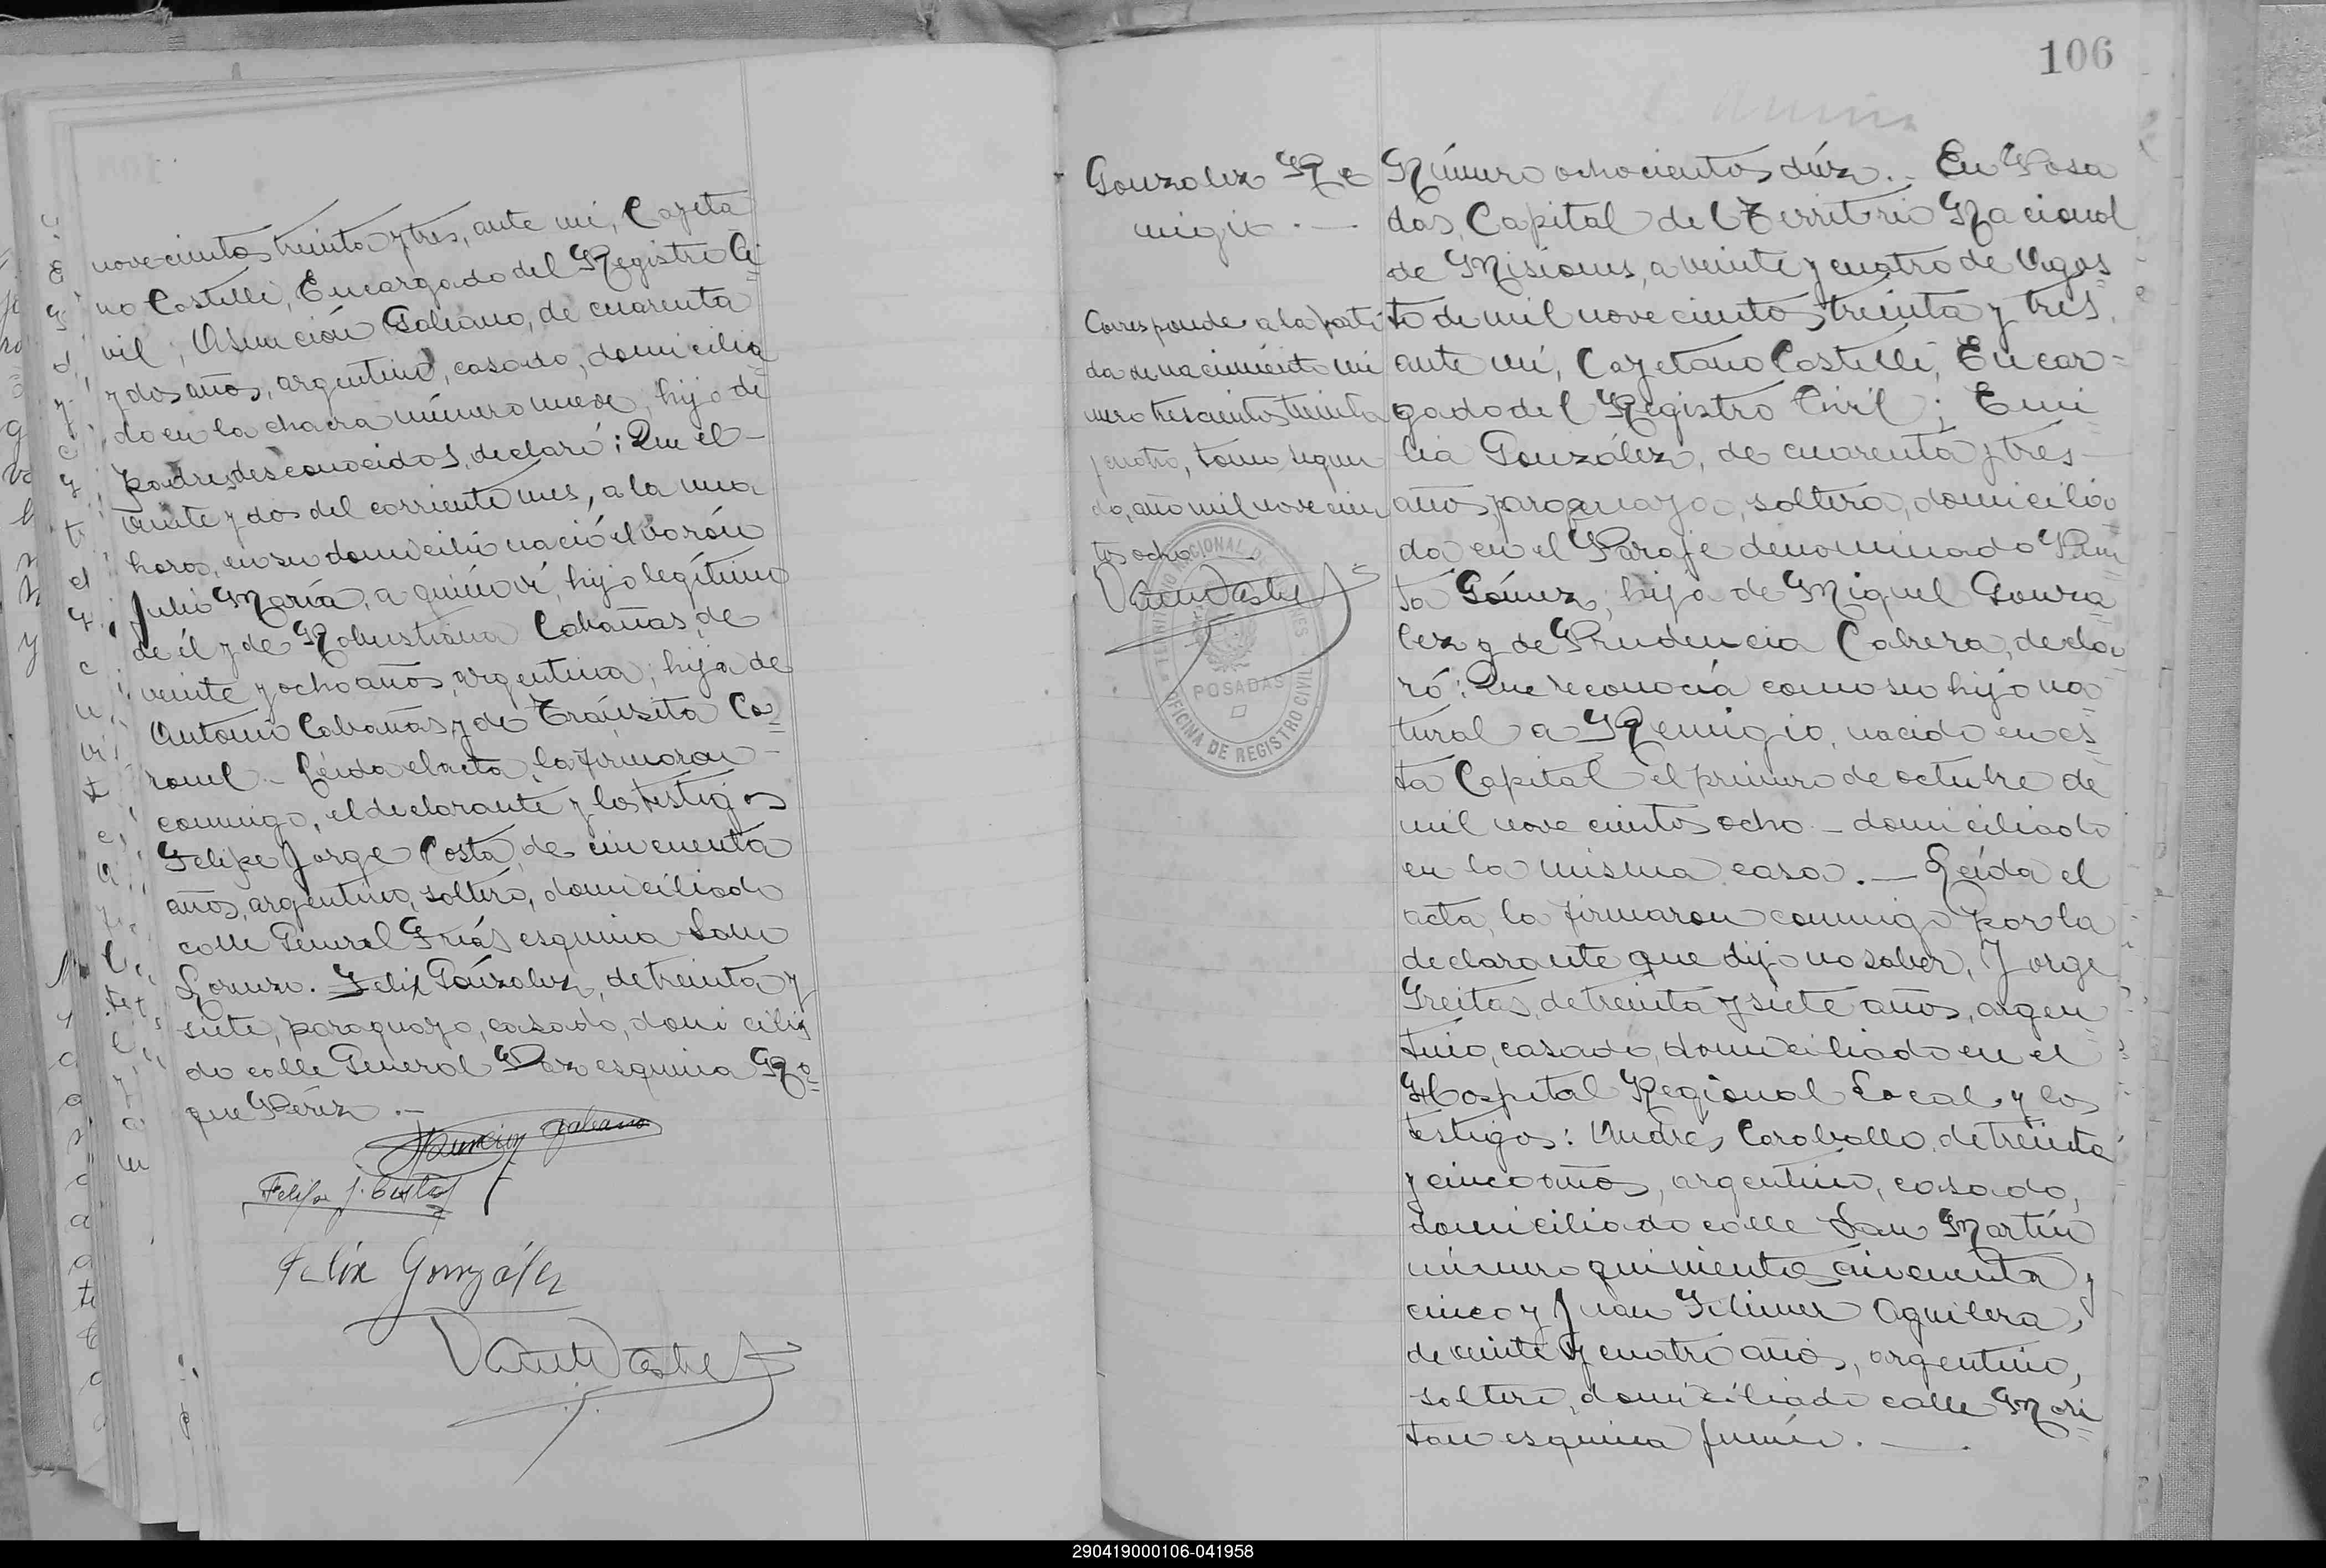 novecientos treinta y tres, ante mí, Cayeta
no Castelli, Encargado del Registro Ci
vil; Asunción Galeano, de cuarenta
y dos años, argentino, casado, domicilia
do en la chacra número nueve, hijo de
padres desconocidos, declaró: Que el
veinte y dos del corriente mes, a la una
hora, en su domicilio nació el varón
Julio María, a quién ví, hijo legítimo
de él y de Robustiana Cabañas, de
veinte y ocho años, argentina, hija de
Antonio Cabañas, y de Tránsita Co
ronel - Leída el acta, la firmaron
conmigo, el declarante y los testigos
Felipe Jorge Costa, de cincuenta
años, argentino, soltero, domiciliado
calle General Frías esquina San
Lorenzo. Felix González, de treinta y
siete, paraguayo, casado, domicilia
do calle General Paz esquina Ro
que Pérez.-
Asunción Galeano
Felipe J. Costa
Felix González
106
González Re
migio.-
Corresponde a la parti
da de nacimiento nú
mero trescientos treinta
y cuatro, tomo segun
do, año mil novecien
tos ocho
TERRITORIO NACIONAL DE MISIONES
POSADAS
OFICINA DE REGISTRO CIVIL
Número ochocientos diez.- En Posa
das, Capital del Territorio Nacional
de Misiones, a veinte y cuatro de Agos
to de mil novecientos treinta y tres,
ante mí, Cayetano Castelli, Encar
gado del Registro Civil; Emi
lia González, de cuarenta y tres
años, paraguaya, soltera, domicilia
da en el Paraje denominado Pun
ta Gómez, hija de Miguel Gonza
lez y de Prudencia Cabrera, decla
ró: Que reconocía como su hijo na
tural a Remigio, nacido en es
ta Capital el primero de octubre de
mil novecientos ocho - domiciliado
en la misma casa.- Leída el
acta, la firmaron conmigo por la
declarante que dijo no saber, Jorge
Freitas, de treinta y siete años, argen
tino, casado, domiciliado en el
Hospital Regional Local y los
testigos: Andres Caraballo, de treinta
y cinco años, argentino, casado,
domiciliado calle San Martín
número quinientos cincuenta y
cinco y Juan Aguilera,
de veinte y cuatro años, argentino,
soltero, domiciliado calle
esquina Junín.-
290419000106-041958